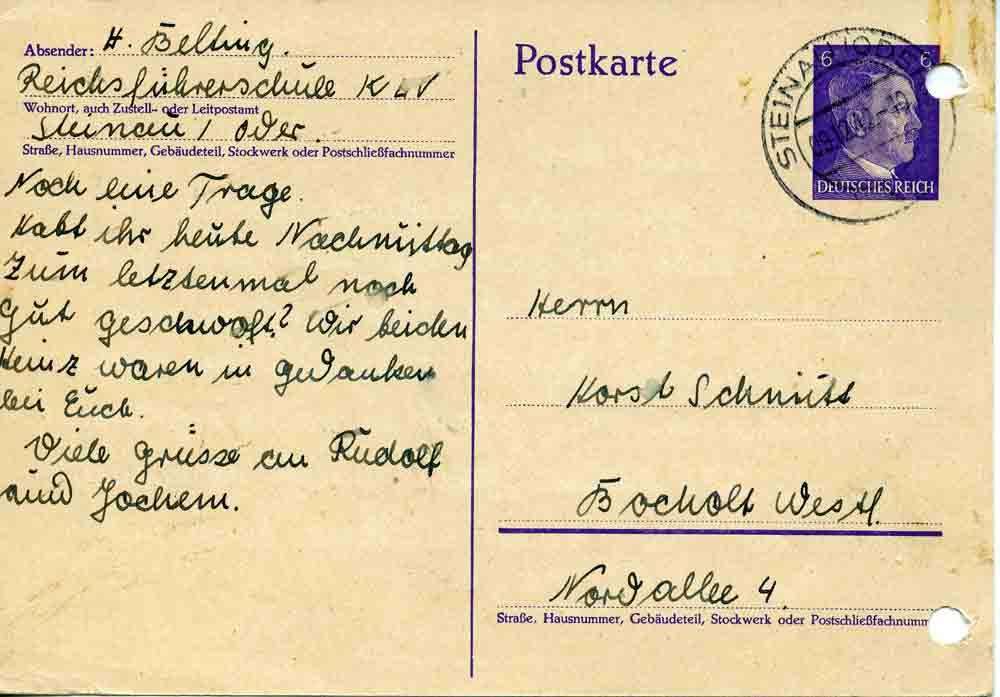 Absender: H. Belting.
Reichsführerschule KLV
Wohnort, auch Zustell- oder Leitpostamt
Steinau / Oder.
Straße, Hausnummer, Gebäudeteil, Stockwerk oder Postschließfachnummer
Noch eine Frage.
Habt ihr heute Nachmittag
Zum letztenmal noch
Gut geschwoft? Wir beiden
Heinz waren in gedanken
bei Euch.
Viele grüsse an Rudolf
und Jochem.
Postkarte
6 6
DEUTSCHES REICH
STEINAU (ODER
Herrn
Horst Schmitt
Bocholt Westf.
Nordallee 4.
Straße, Hausnummer, Gebäudeteil, Stockwerk oder Postschließfachnumm